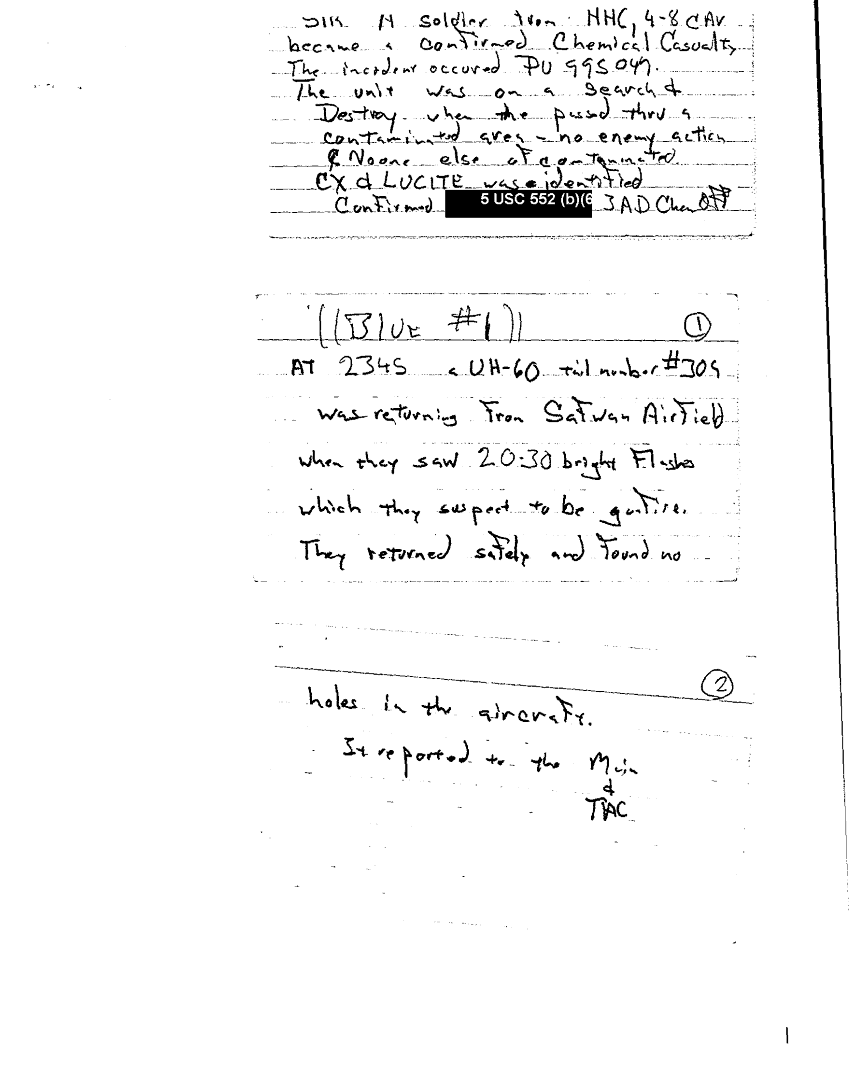 A soldier from HHC, 4-8 CAV
became a confirmed Chemical Casualty
The incident occured PU 995047.
The unit was on a Search &
Destroy when the passed thru a
contaminated area - no enemy action
& Noone else of contaminated
CX & LUCITE was identified
Confirmed 5 USC 552 (b)(6 3 AD Chem Off
((Blue #1)) 1
AT 2345 a UH-60 tail number #309
was returning from Safwan AirField
when they saw 20-30 bright Flashes
which they suspect to be gunfire.
They returned safely and found no
2
holes in the aircraft.
It reported to the Main
&
TAC
1